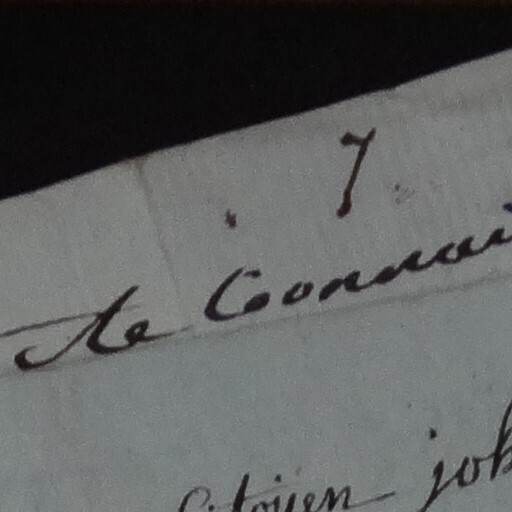 7
de Connai
Citoyen job